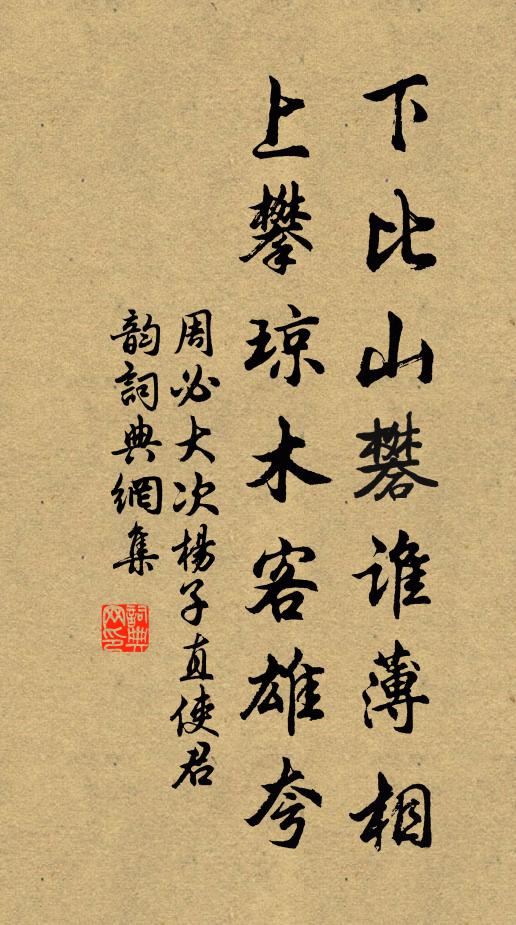 下比山礬谁薄相
上攀琼木客雄夸
周必大次楊子直使君
韵詞典網集
詞典网印